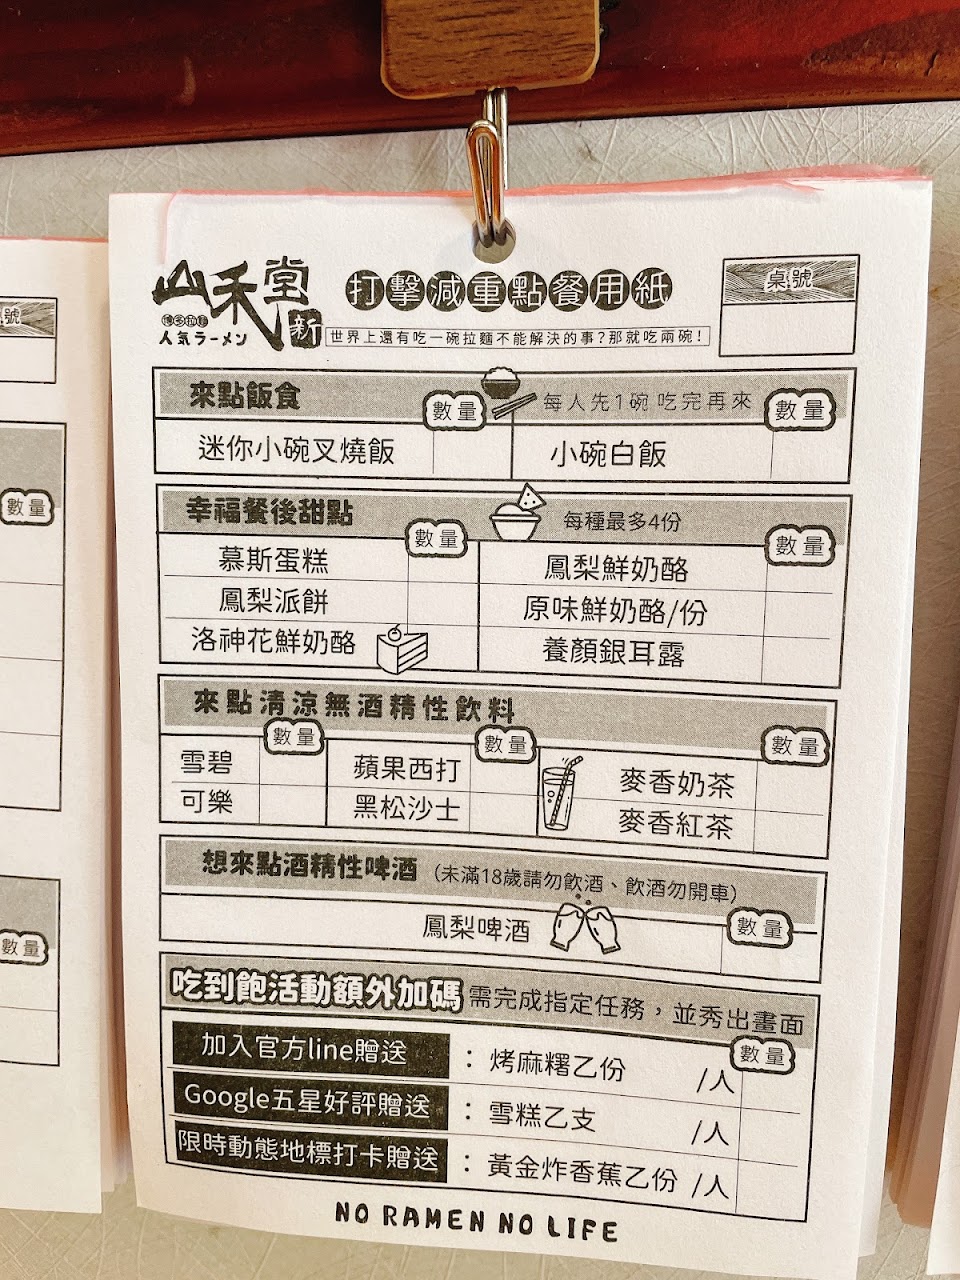 山禾堂
博多拉麵
人気ラーメン
新
打擊減重點餐用紙
世界上還有吃一碗拉麵不能解決的事?那就吃兩碗!
桌號
來點飯食
數量
每人先1碗 吃完再來
數量
迷你小碗叉燒飯
小碗白飯
幸福餐後甜點
數量
每種最多4份
數量
慕斯蛋糕
鳳梨鮮奶酪
鳳梨派餅
原味鮮奶酪/份
洛神花鮮奶酪
養顏銀耳露
來點清涼無酒精性飲料
數量
數量
數量
雪碧
蘋果西打
麥香奶茶
可樂
黑松沙士
麥香紅茶
想來點酒精性啤酒 (未滿18歲請勿飲酒、飲酒勿開車)
數量
鳳梨啤酒
吃到飽活動額外加碼 需完成指定任務,並秀出畫面
數量
加入官方line贈送 : 烤麻糬乙份 /人
Google五星好評贈送 : 雪糕乙支 /人
限時動態地標打卡贈送 : 黃金炸香蕉乙份 /人
NO RAMEN NO LIFE
號
數量
數量